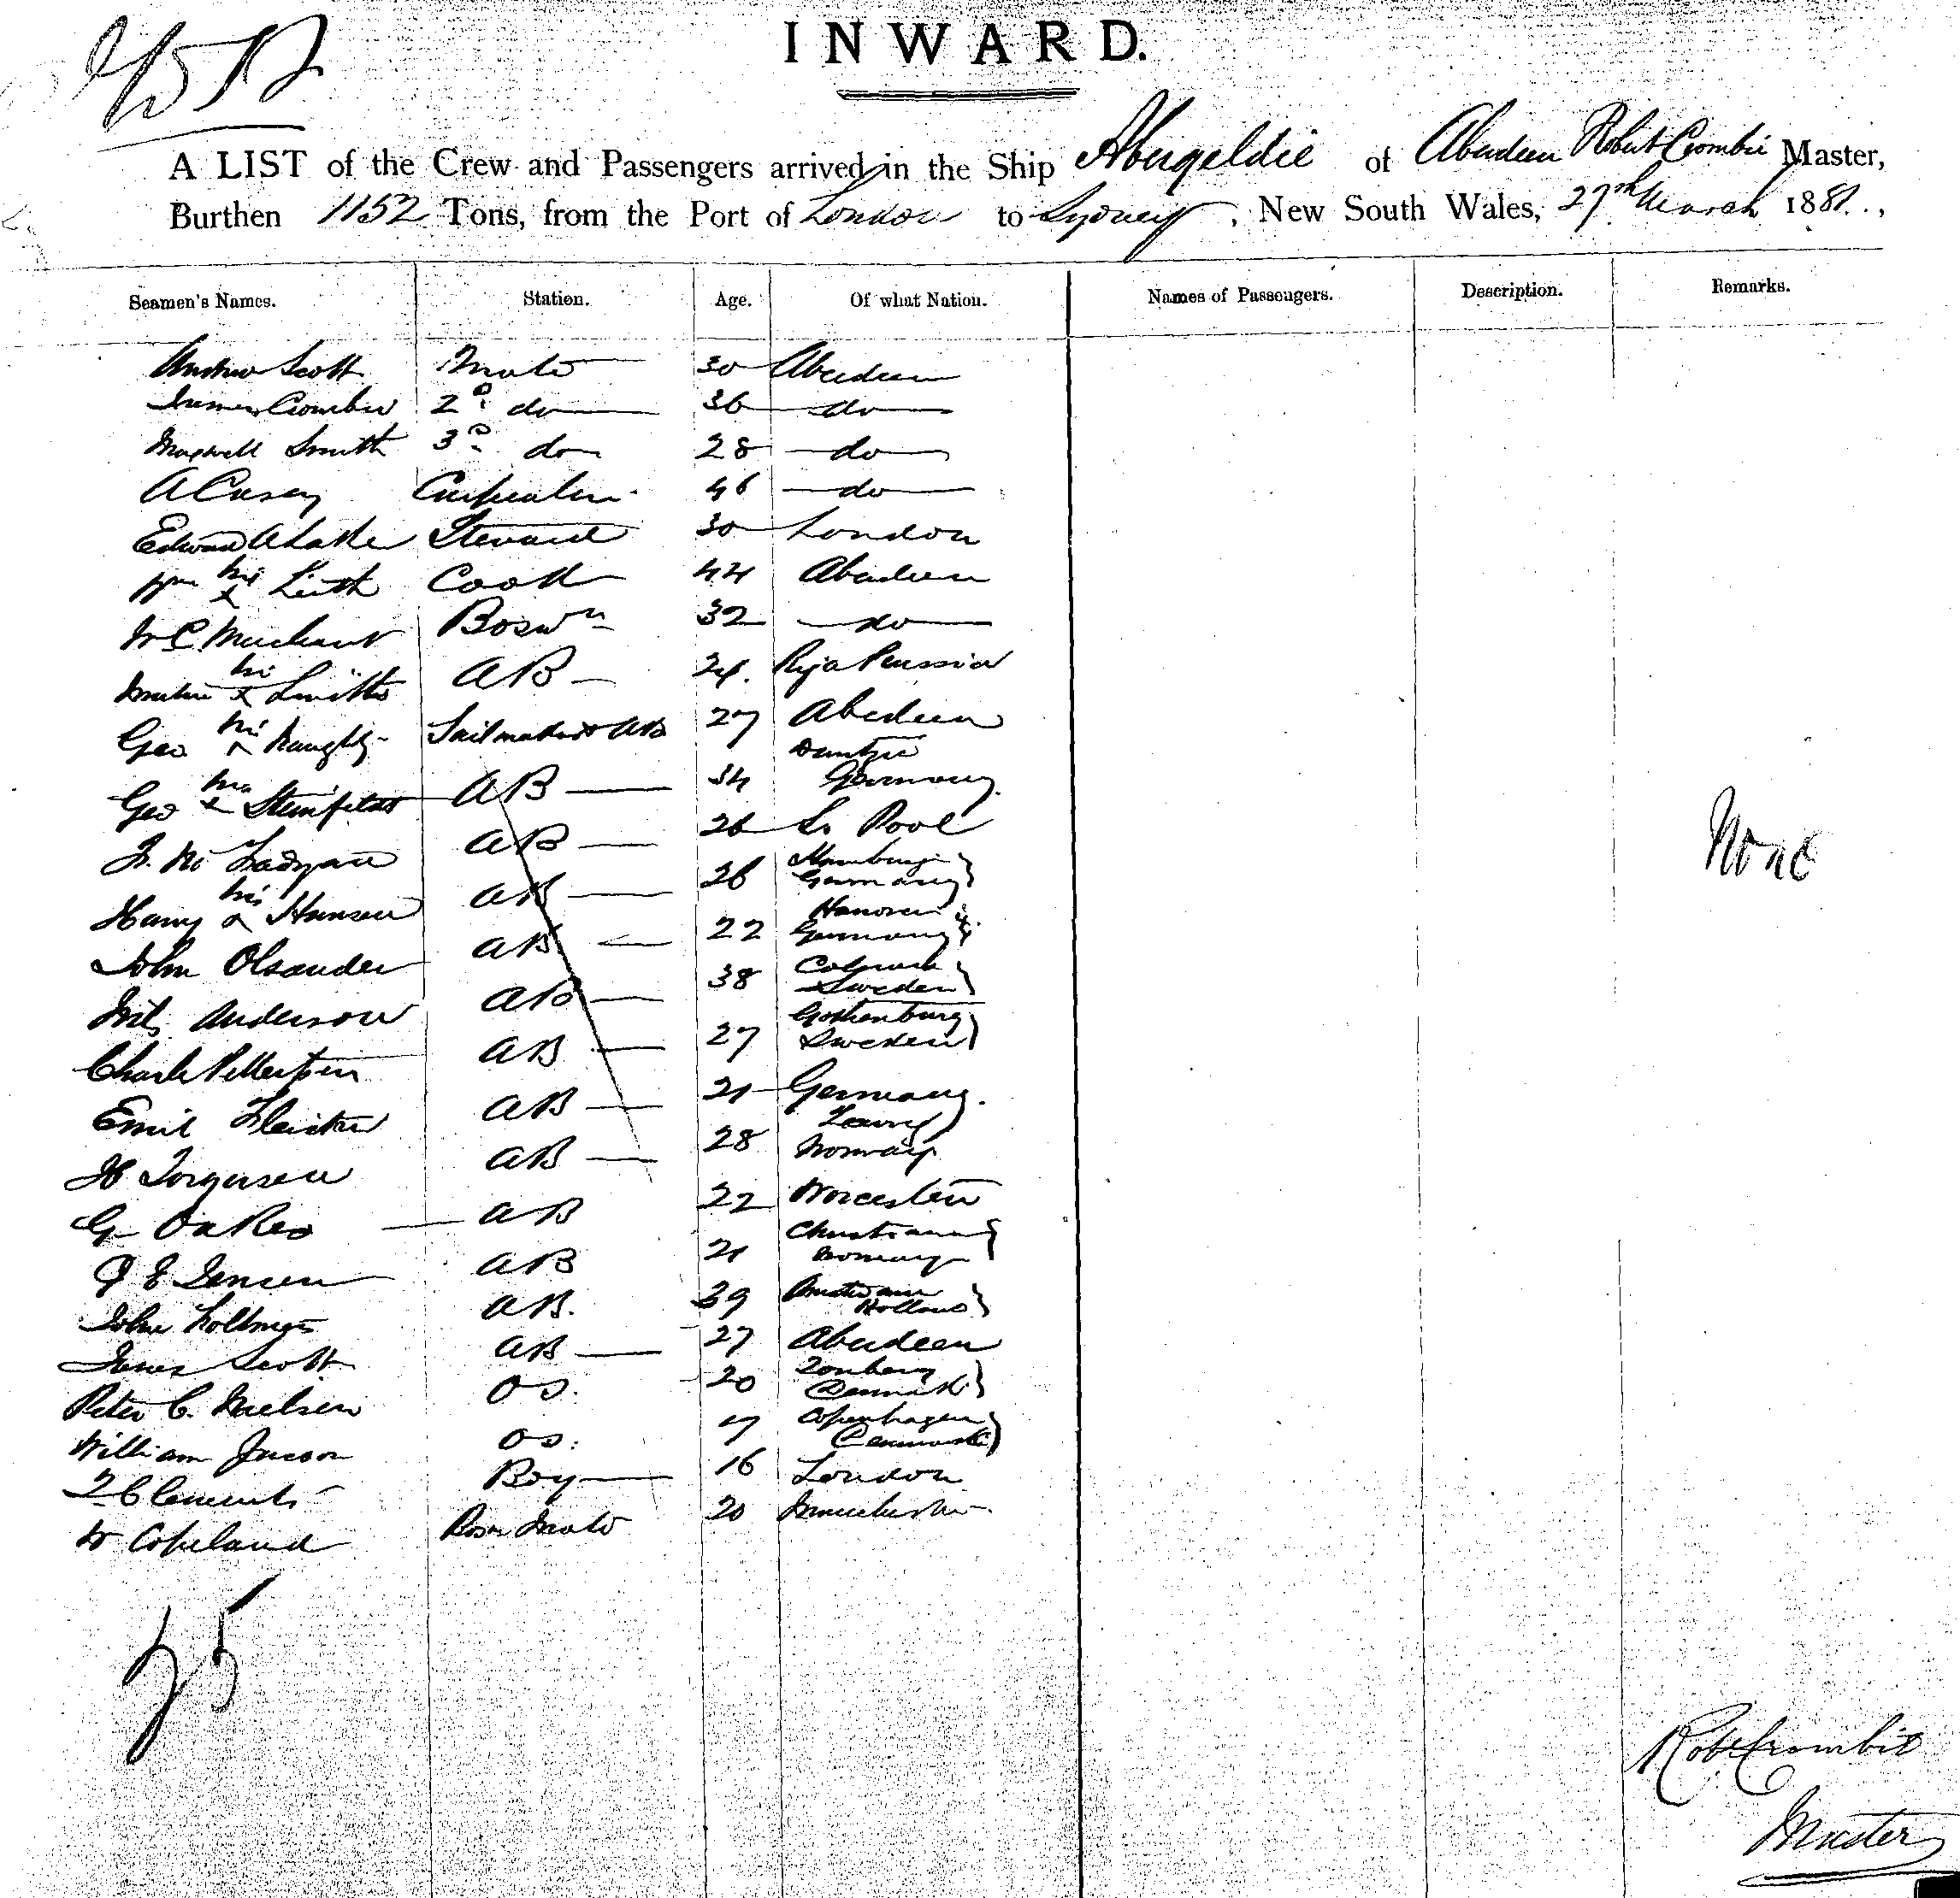 INWARD.
A LIST of the Crew and Passengers arrived in the Ship Abergeldie of Aberdeen Robert Crombie Master,
Burthen 1152 Tons, from the Port of London to Sydney, New South Wales, 27th March 1881.,
Seamen's Names. Station. Age. Of what Nation. Names of Passengers. Description. Remarks.
Andrew Scott Mate 30 Aberdeen
James Crombie 2d do 36 do
Maxwell Smith 3d do 28 do
A Casey Carpenter 46 do
Edward A Lake Steward 30 London
Wm his x Keith Cook 44 Aberdeen
W C Merchant Boswn 32 do
his x AB 24. Russia
Geo his x Naughty Sailmaker & AB 27 Aberdeen
Geo his x AB 34 Dantzic Germany.
AB 26 L Pool
None
Harry his x Hansen AB 26 Hamburg Germany
John Olsander AB 22 Hanover Germany
Nils Anderson AB 38 Sweden
Charle AB 27 Gothenburg Sweden
Emil AB 21 Germany.
H Torgersen AB 28 Norway
G Oakes AB 22 Worcester
J E Jensen AB 21 Christiana Norway
John AB. 39 Amsterdam Holland
James Scott AB 27 Aberdeen
Peter C. Nielsen OS. 20 Denmark
William OS. 17 Copenhagen Denmark
T Clements Boy 16 London
W Copeland Bosn Mate 20 Manchester
25
Robt Crombie
Master